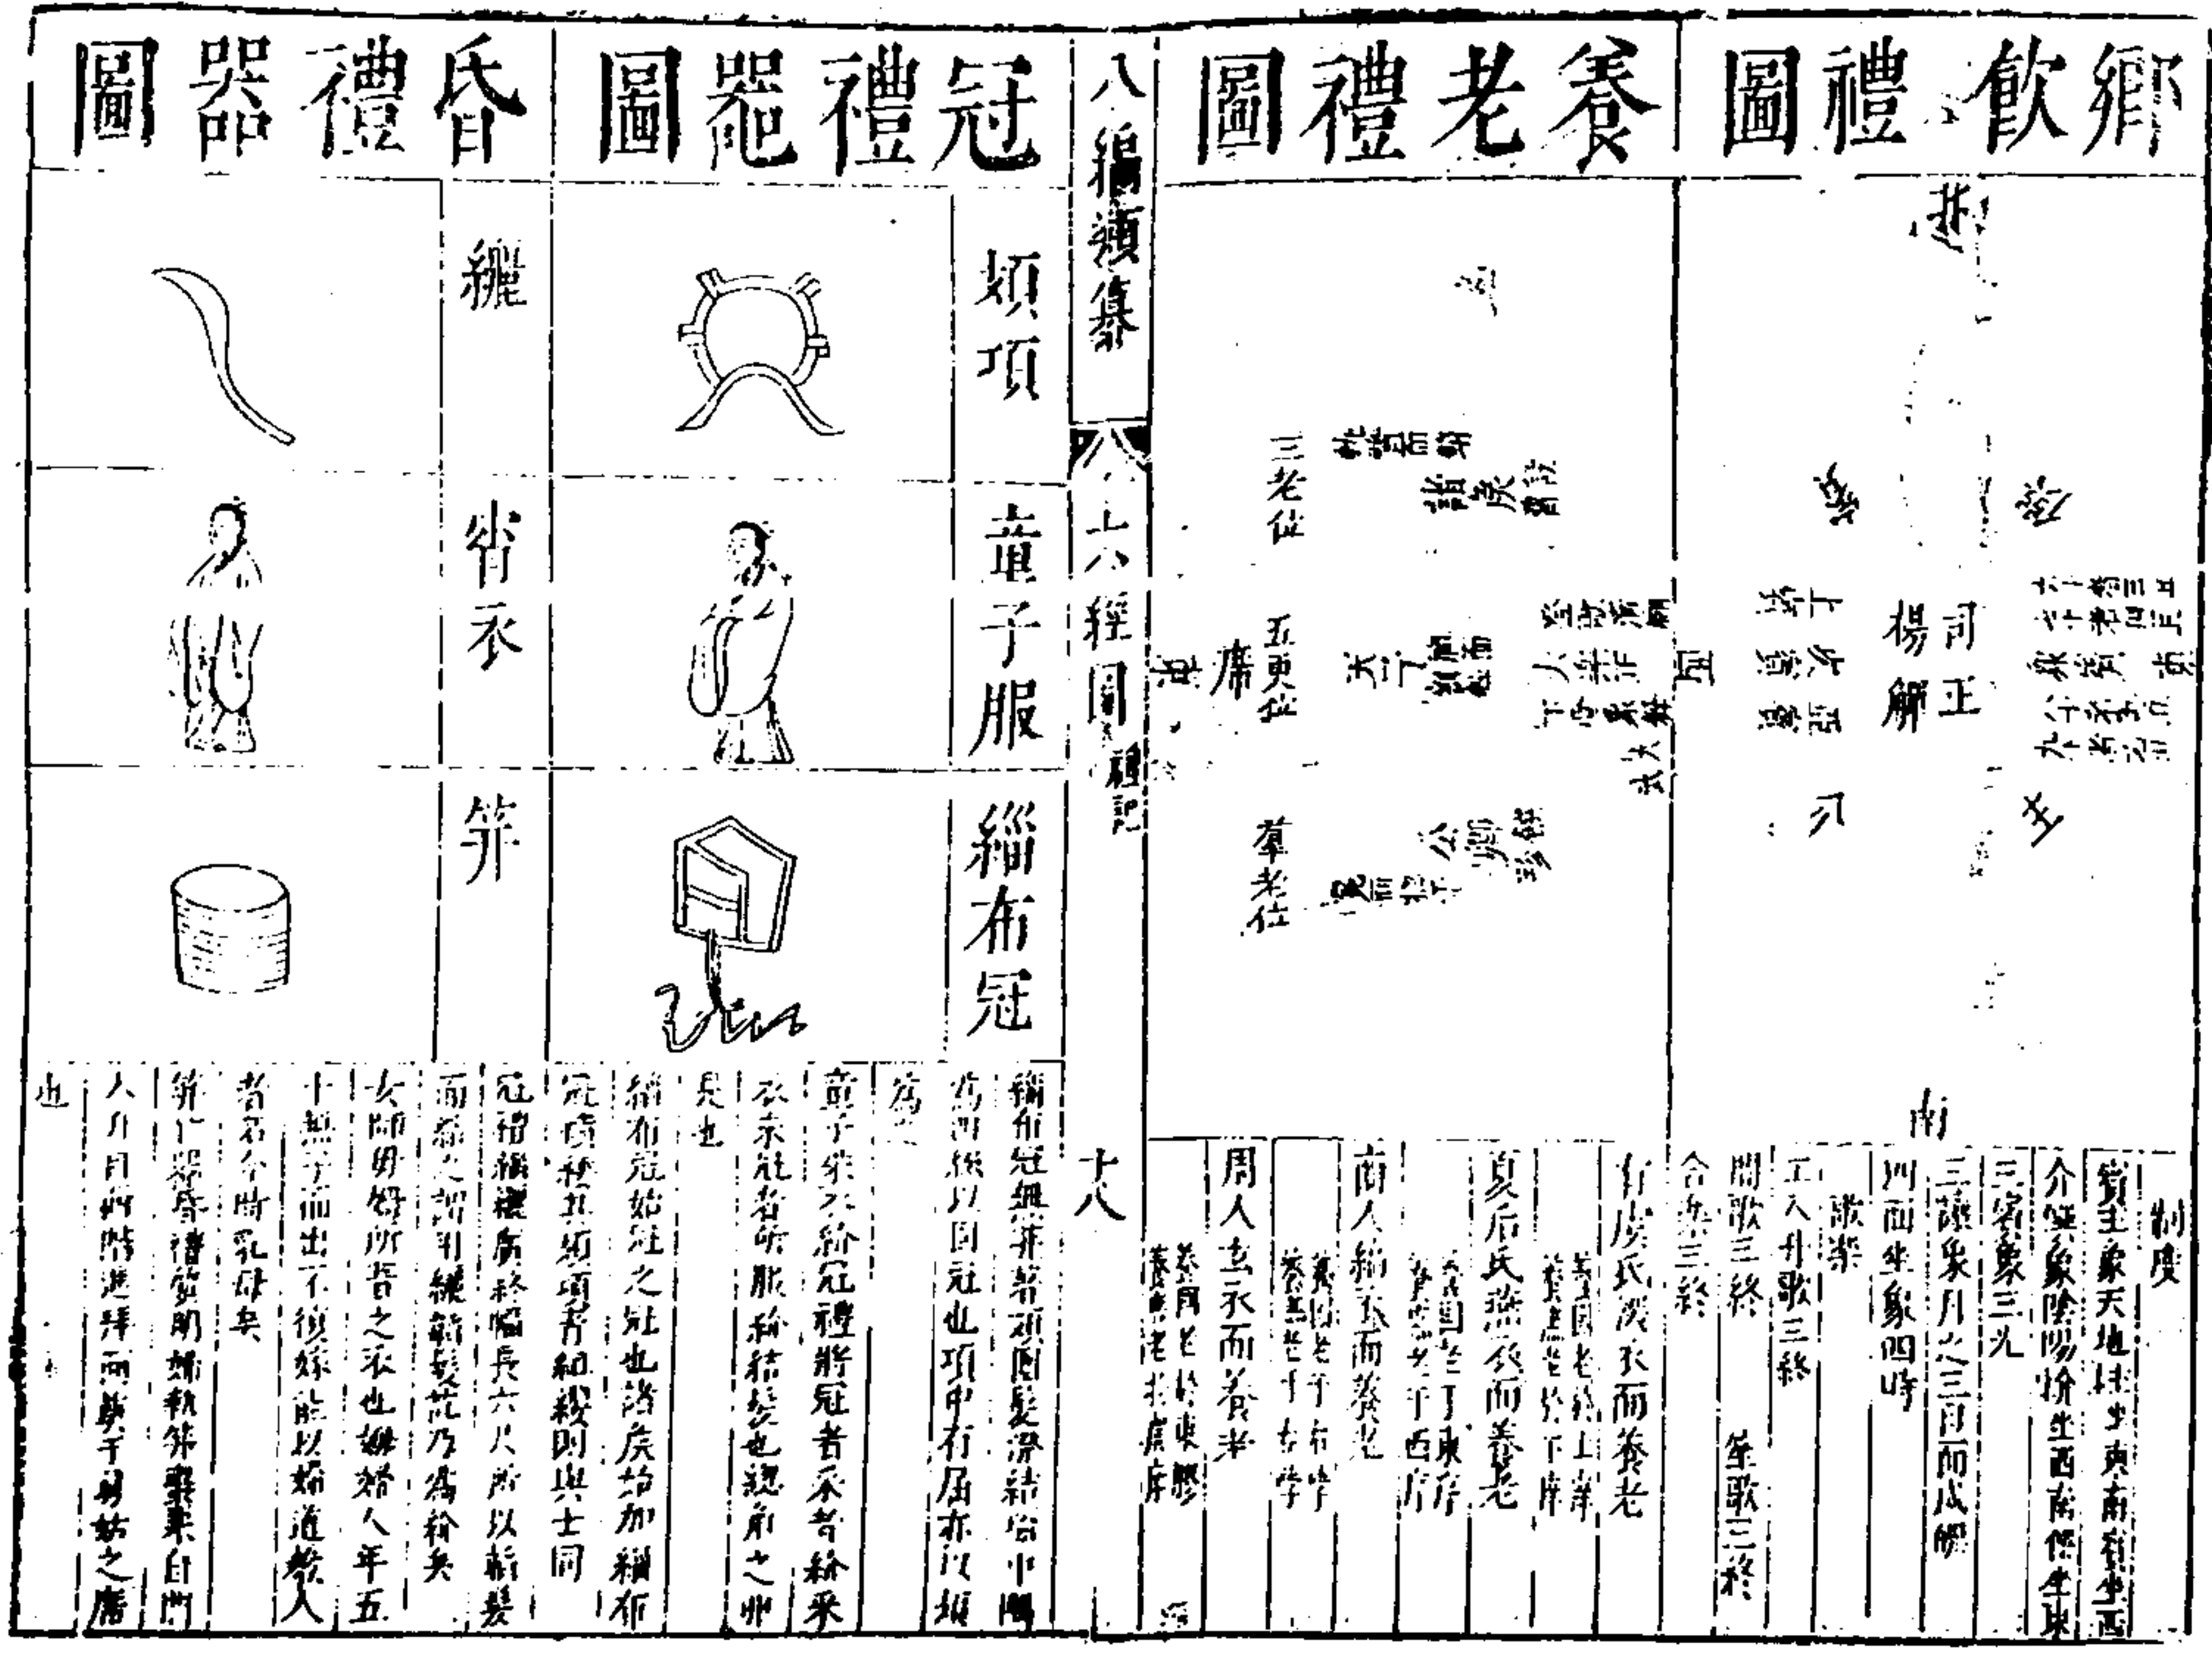 鄉飲禮圖
北
僎
賓
司正
揚觶
主
介
東
西
南
制度
賓主象天地主坐東南賓坐西
介僎象陰陽介坐西南僎坐東
三賓象三光
三讓象月之三日而成魄
四面坐象四時
歌樂
工入升歌三終
笙歌三終
間歌三終
合樂三終
養老禮圖
諸侯
天子
公卿
三老位
五更位
羣老位
席
有虞氏深衣而養老
養國老於上庠
養庶老於下庠
夏后氏燕衣而養老
養國老于東序
養庶老于西序
商人縞衣而養老
養國老于右學
養庶老于左學
周人玄衣而養老
養國老於東膠
養庶老於虞庠
八編類纂
六經圖
禮記
十八
冠禮器圖
頍項
童子服
緇布冠
緇布冠無笄著頍圍髮際結項中隅
為四綴以固冠也項中有𦈢亦以頍
為之
童子采衣紒冠禮將冠者采者紒采
衣未冠者所服紒結髮也總角之丱
是也
緇布冠始冠之冠也諸侯始加緇布
冠繢緌其頍項青組纓則與士同
昏禮器圖
纚
宵衣
笲
冠禮緇纚廣終幅長六尺所以韜髮
而結之謂用纚韜髮訖乃為紒矣
女師姆所着之衣也姆婦人年五
十無子而出不復嫁能以婦道教人
者若今時乳母矣
笲亡器昏禮質明婦執笲棗栗自門
入升自西階進拜而奠于舅姑之席
也